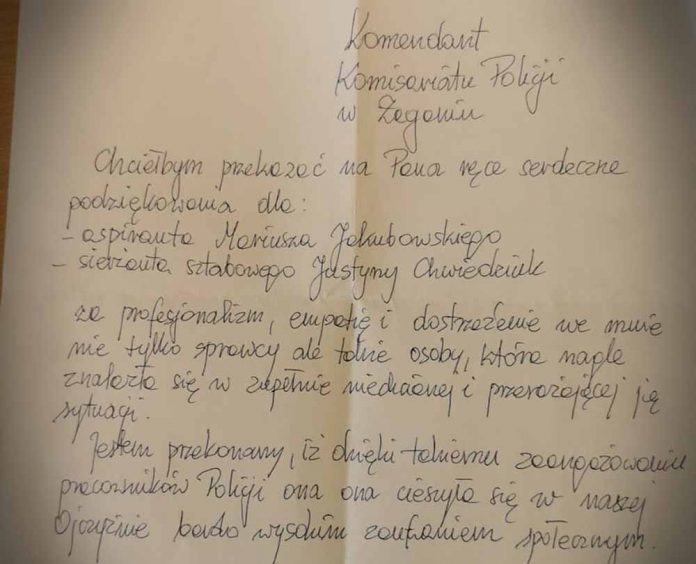 Komendant
Komisariatu Policji
w Żaganiu
Chciałbym przekazać na Pana ręce serdeczne
podziękowania dla:
- aspiranta Mariusza Jakubowskiego
- sierżanta sztabowego Justyny Chwiedziuk
za profesjonalizm, empatię i dostrzeżenie we mnie
nie tylko sprawcy ale także osoby, która nagle
znalazła się w zupełnie niechcianej i przerażającej ją
sytuacji.
Jestem przekonany, iż dzięki takiemu zaangażowaniu
pracowników Policji ona ona cieszyła się w naszej
Ojczyźnie bardzo wysokim zaufaniem społecznym.